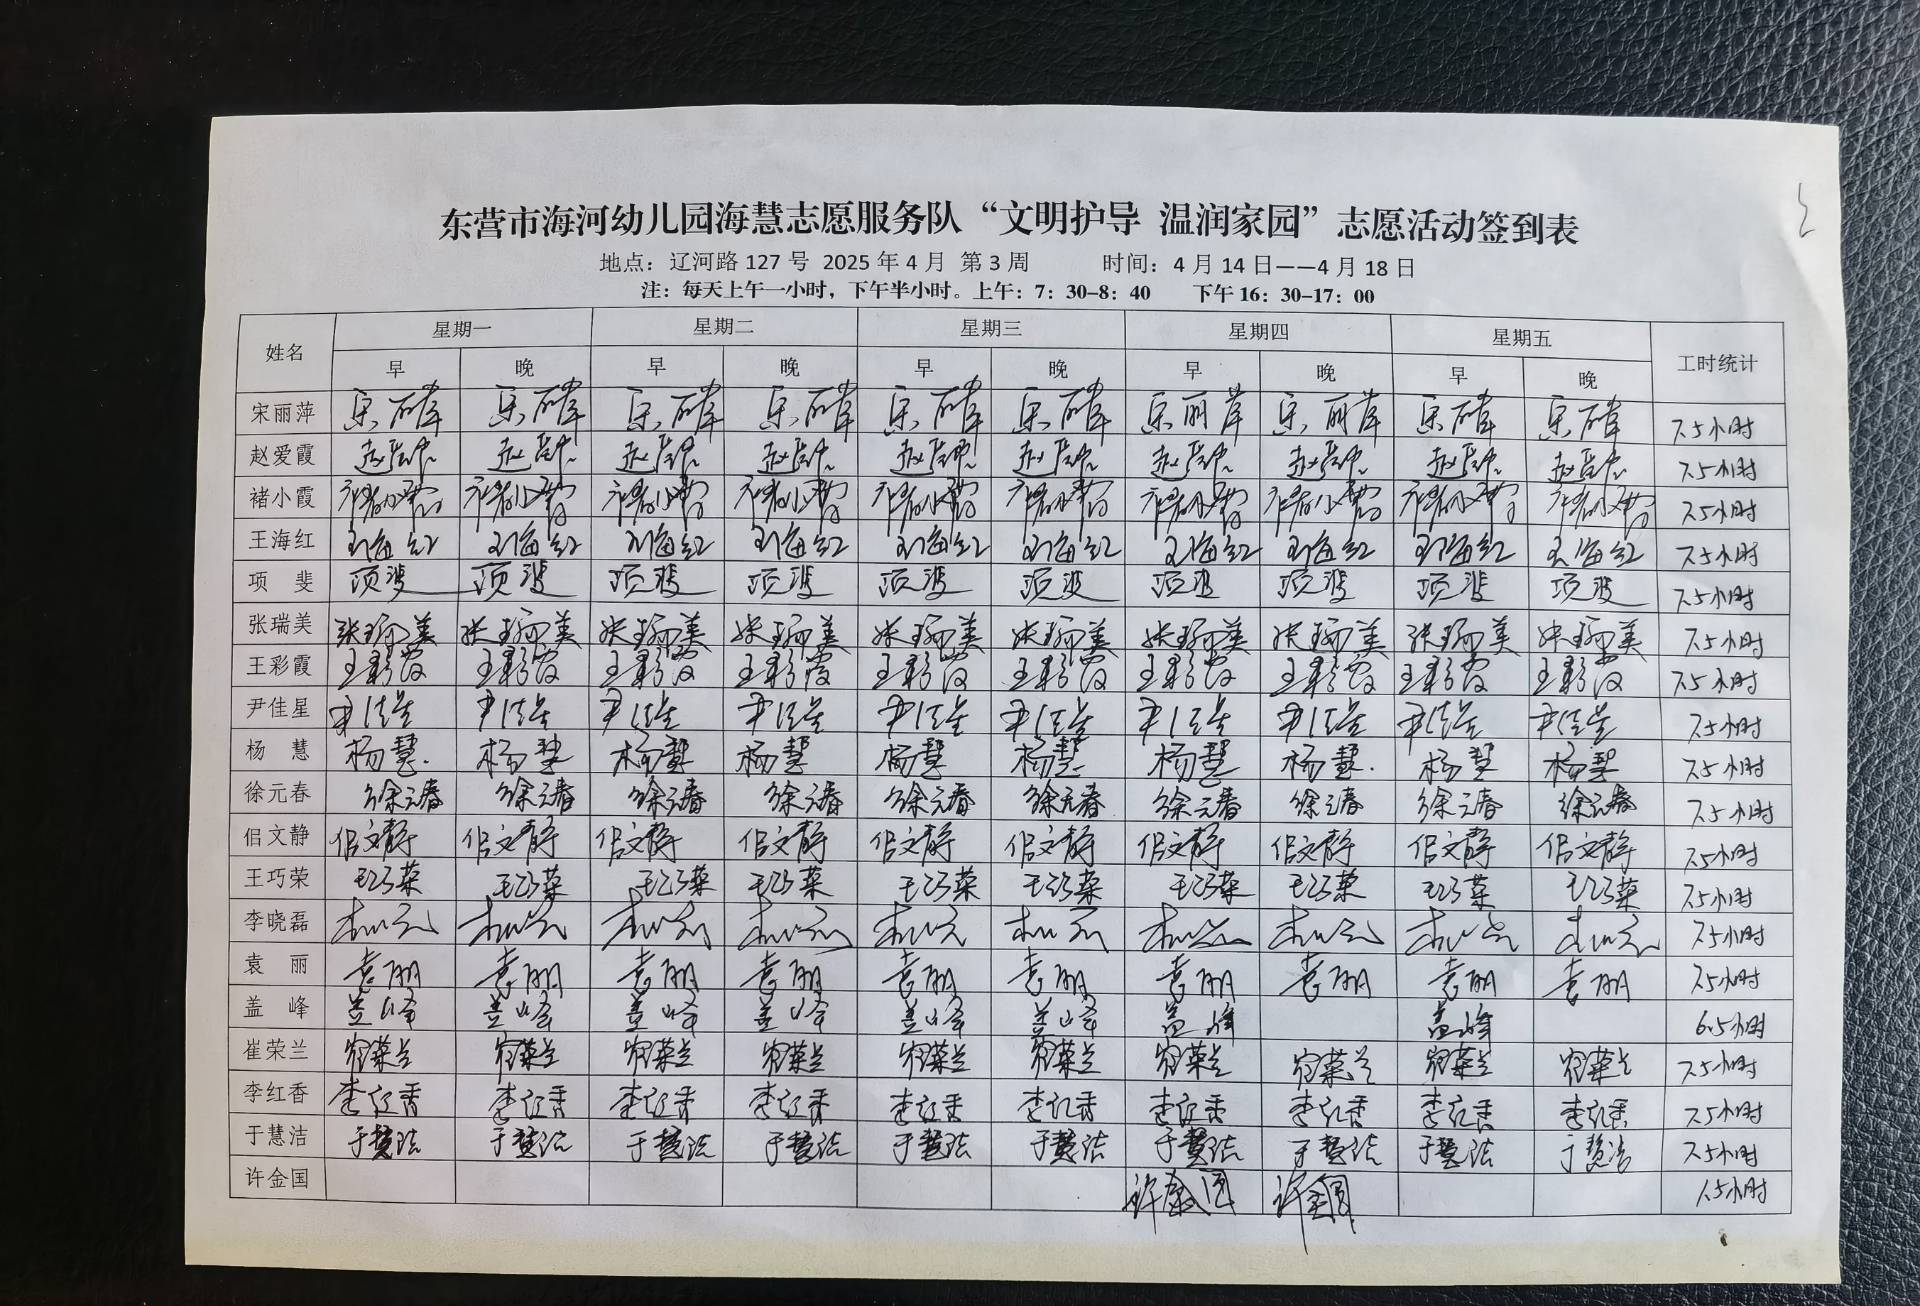 东营市海河幼儿园海慧志愿服务队“文明护导 温润家园”志愿活动签到表
地点：辽河路 127 号 2025 年 4 月 第 3 周 时间：4 月 14 日——4 月 18 日
注：每天上午一小时，下午半小时。上午：7：30-8：40 下午 16：30-17：00
姓名 星期一 星期二 星期三 星期四 星期五 工时统计
早 晚 早 晚 早 晚 早 晚 早 晚
宋丽萍 宋丽萍 宋丽萍 宋丽萍 宋丽萍 宋丽萍 宋丽萍 宋丽萍 宋丽萍 宋丽萍 宋丽萍 7.5小时
赵爱霞 赵爱霞 赵爱霞 赵爱霞 赵爱霞 赵爱霞 赵爱霞 赵爱霞 赵爱霞 赵爱霞 赵爱霞 7.5小时
褚小霞 褚小霞 褚小霞 褚小霞 褚小霞 褚小霞 褚小霞 褚小霞 褚小霞 褚小霞 褚小霞 7.5小时
王海红 王海红 王海红 王海红 王海红 王海红 王海红 王海红 王海红 王海红 王海红 7.5小时
项 斐 项斐 项斐 项斐 项斐 项斐 项斐 项斐 项斐 项斐 项斐 7.5小时
张瑞美 张瑞美 张瑞美 张瑞美 张瑞美 张瑞美 张瑞美 张瑞美 张瑞美 张瑞美 张瑞美 7.5小时
王彩霞 王彩霞 王彩霞 王彩霞 王彩霞 王彩霞 王彩霞 王彩霞 王彩霞 王彩霞 王彩霞 7.5小时
尹佳星 尹佳星 尹佳星 尹佳星 尹佳星 尹佳星 尹佳星 尹佳星 尹佳星 尹佳星 尹佳星 7.5小时
杨 慧 杨慧. 杨慧 杨慧 杨慧 杨慧 杨慧 杨慧 杨慧. 杨慧 杨慧 7.5小时
徐元春 徐元春 徐元春 徐元春 徐元春 徐元春 徐元春 徐元春 徐元春 徐元春 徐元春 7.5小时
佀文静 佀文静 佀文静 佀文静 佀文静 佀文静 佀文静 佀文静 佀文静 佀文静 佀文静 7.5小时
王巧荣 王巧荣 王巧荣 王巧荣 王巧荣 王巧荣 王巧荣 王巧荣 王巧荣 王巧荣 王巧荣 7.5小时
李晓磊 7.5小时
袁 丽 袁丽 袁丽 袁丽 袁丽 袁丽 袁丽 袁丽 袁丽 袁丽 袁丽 7.5小时
盖 峰 盖峰 盖峰 盖峰 盖峰 盖峰 盖峰 盖峰 盖峰 6.5小时
崔荣兰 崔荣兰 崔荣兰 崔荣兰 崔荣兰 崔荣兰 崔荣兰 崔荣兰 崔荣兰 崔荣兰 崔荣兰 7.5小时
李红香 李红香 李红香 李红香 李红香 李红香 李红香 李红香 李红香 李红香 李红香 7.5小时
于慧洁 于慧洁 于慧洁 于慧洁 于慧洁 于慧洁 于慧洁 于慧洁 于慧洁 于慧洁 于慧洁 7.5小时
许金国 许金国 许金国 1.5小时